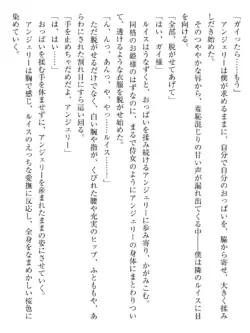 ガイったら……もう」
アンジェリーは僕が求めるままに、自分で自分のおっぱいを、脇から、大きく揉み
しだき始めた。
そのつややかな唇から、羞恥混じりの甘い声が漏れ出てくる中――僕は隣のルイスに目
を向ける。
「全部、脱がせてあげて」
「はい、ガイ様」
ルイスはうなずくと、おっぱいを揉み続けるアンジェリーに歩み寄り、かがみこむ。
同格のお姫様のはずなのに、まるで侍女のようにアンジェリーの身体にまとわりつい
て、透けるような衣服を脱がせ始めた。
「ん、んぅ、あんっ、や、やっ……ルイス……っ」
ただ脱がせるだけでなく、白い腕や指が、くびれた腰や充実のヒップ、ふとももや、あ
らわにされた割れ目にすら這い回る。
「手を止めちゃだめだよ、アンジェリー」
「は、はい……あぁっ」
おっぱいを揉む手を休ませずに、アンジェリーがたたずんだままの姿にさせていく。
アンジェリーは胸で感じ、ルイスのえっちな愛撫に反応し、全身をなまめかしい桜色に
染めていく。